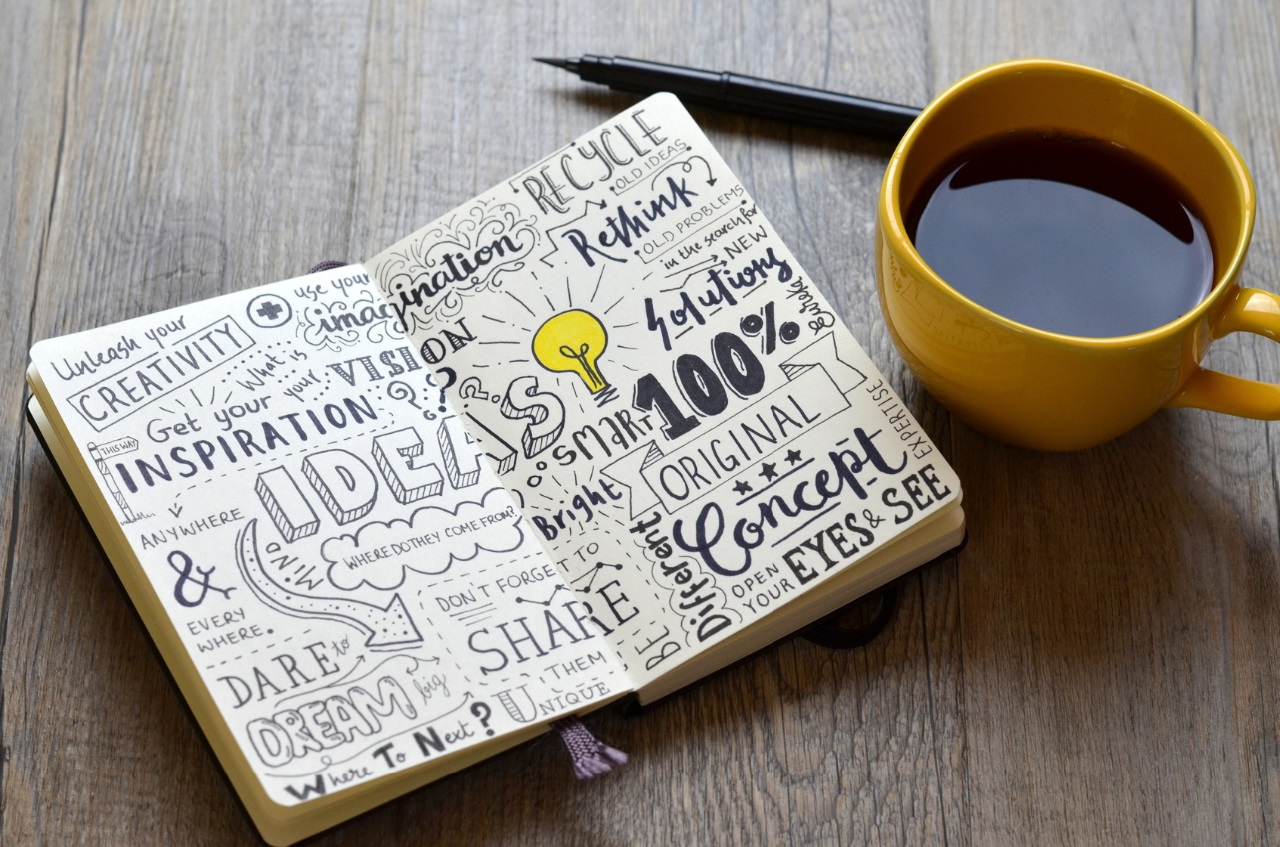 Unleash your
CREATIVITY
use your
imagination
What is
your VISION
Get your
INSPIRATION
THIS WAY
IDEAS
ANYWHERE
&
EVERY
WHERE.
MIND
WHERE DO THEY COME FROM?
DON'T FORGET TO
SHARE
THEM
DARE to
DREAM big
Where To Next?
UNIQUE
RECYCLE
OLD IDEAS
Rethink
OLD PROBLEMS
in the search for
NEW
Solutions
Eureka
SMART
100%
ORIGINAL
Bright
Concept
EXPERTISE
BE
Different
OPEN
YOUR EYES & SEE